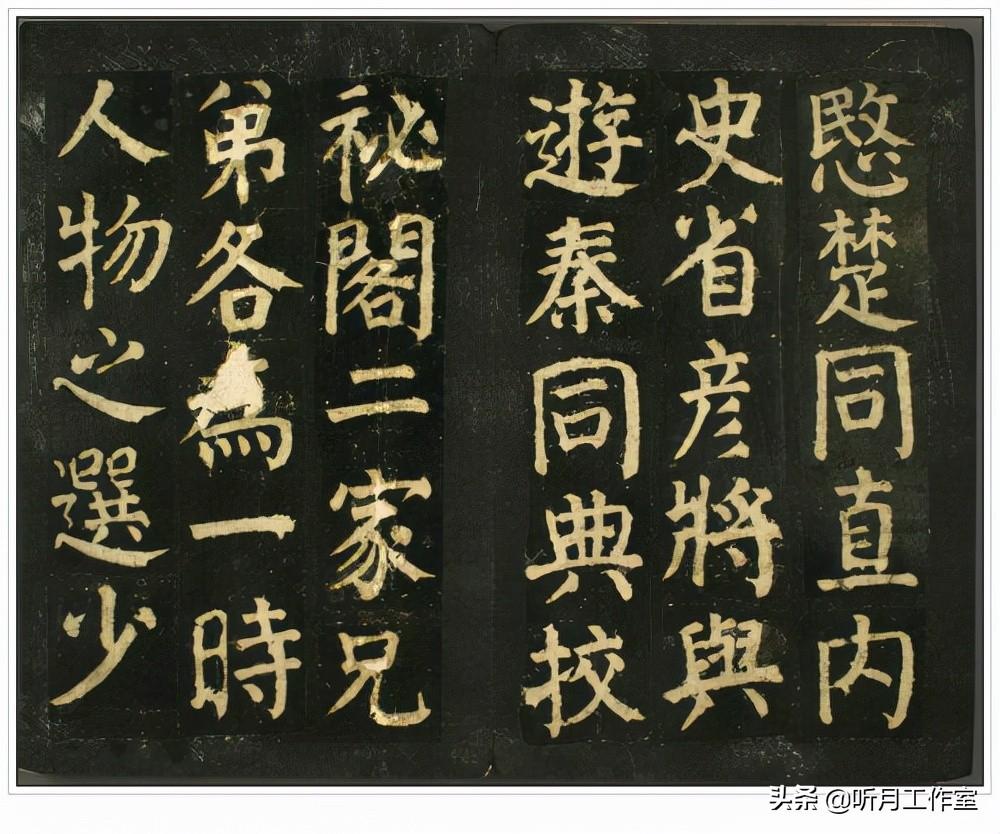 愍楚同直内
史省彦將與
遊秦同典校
祕閣二家兄
弟各為一時
人物之選少
头条 @听月工作室